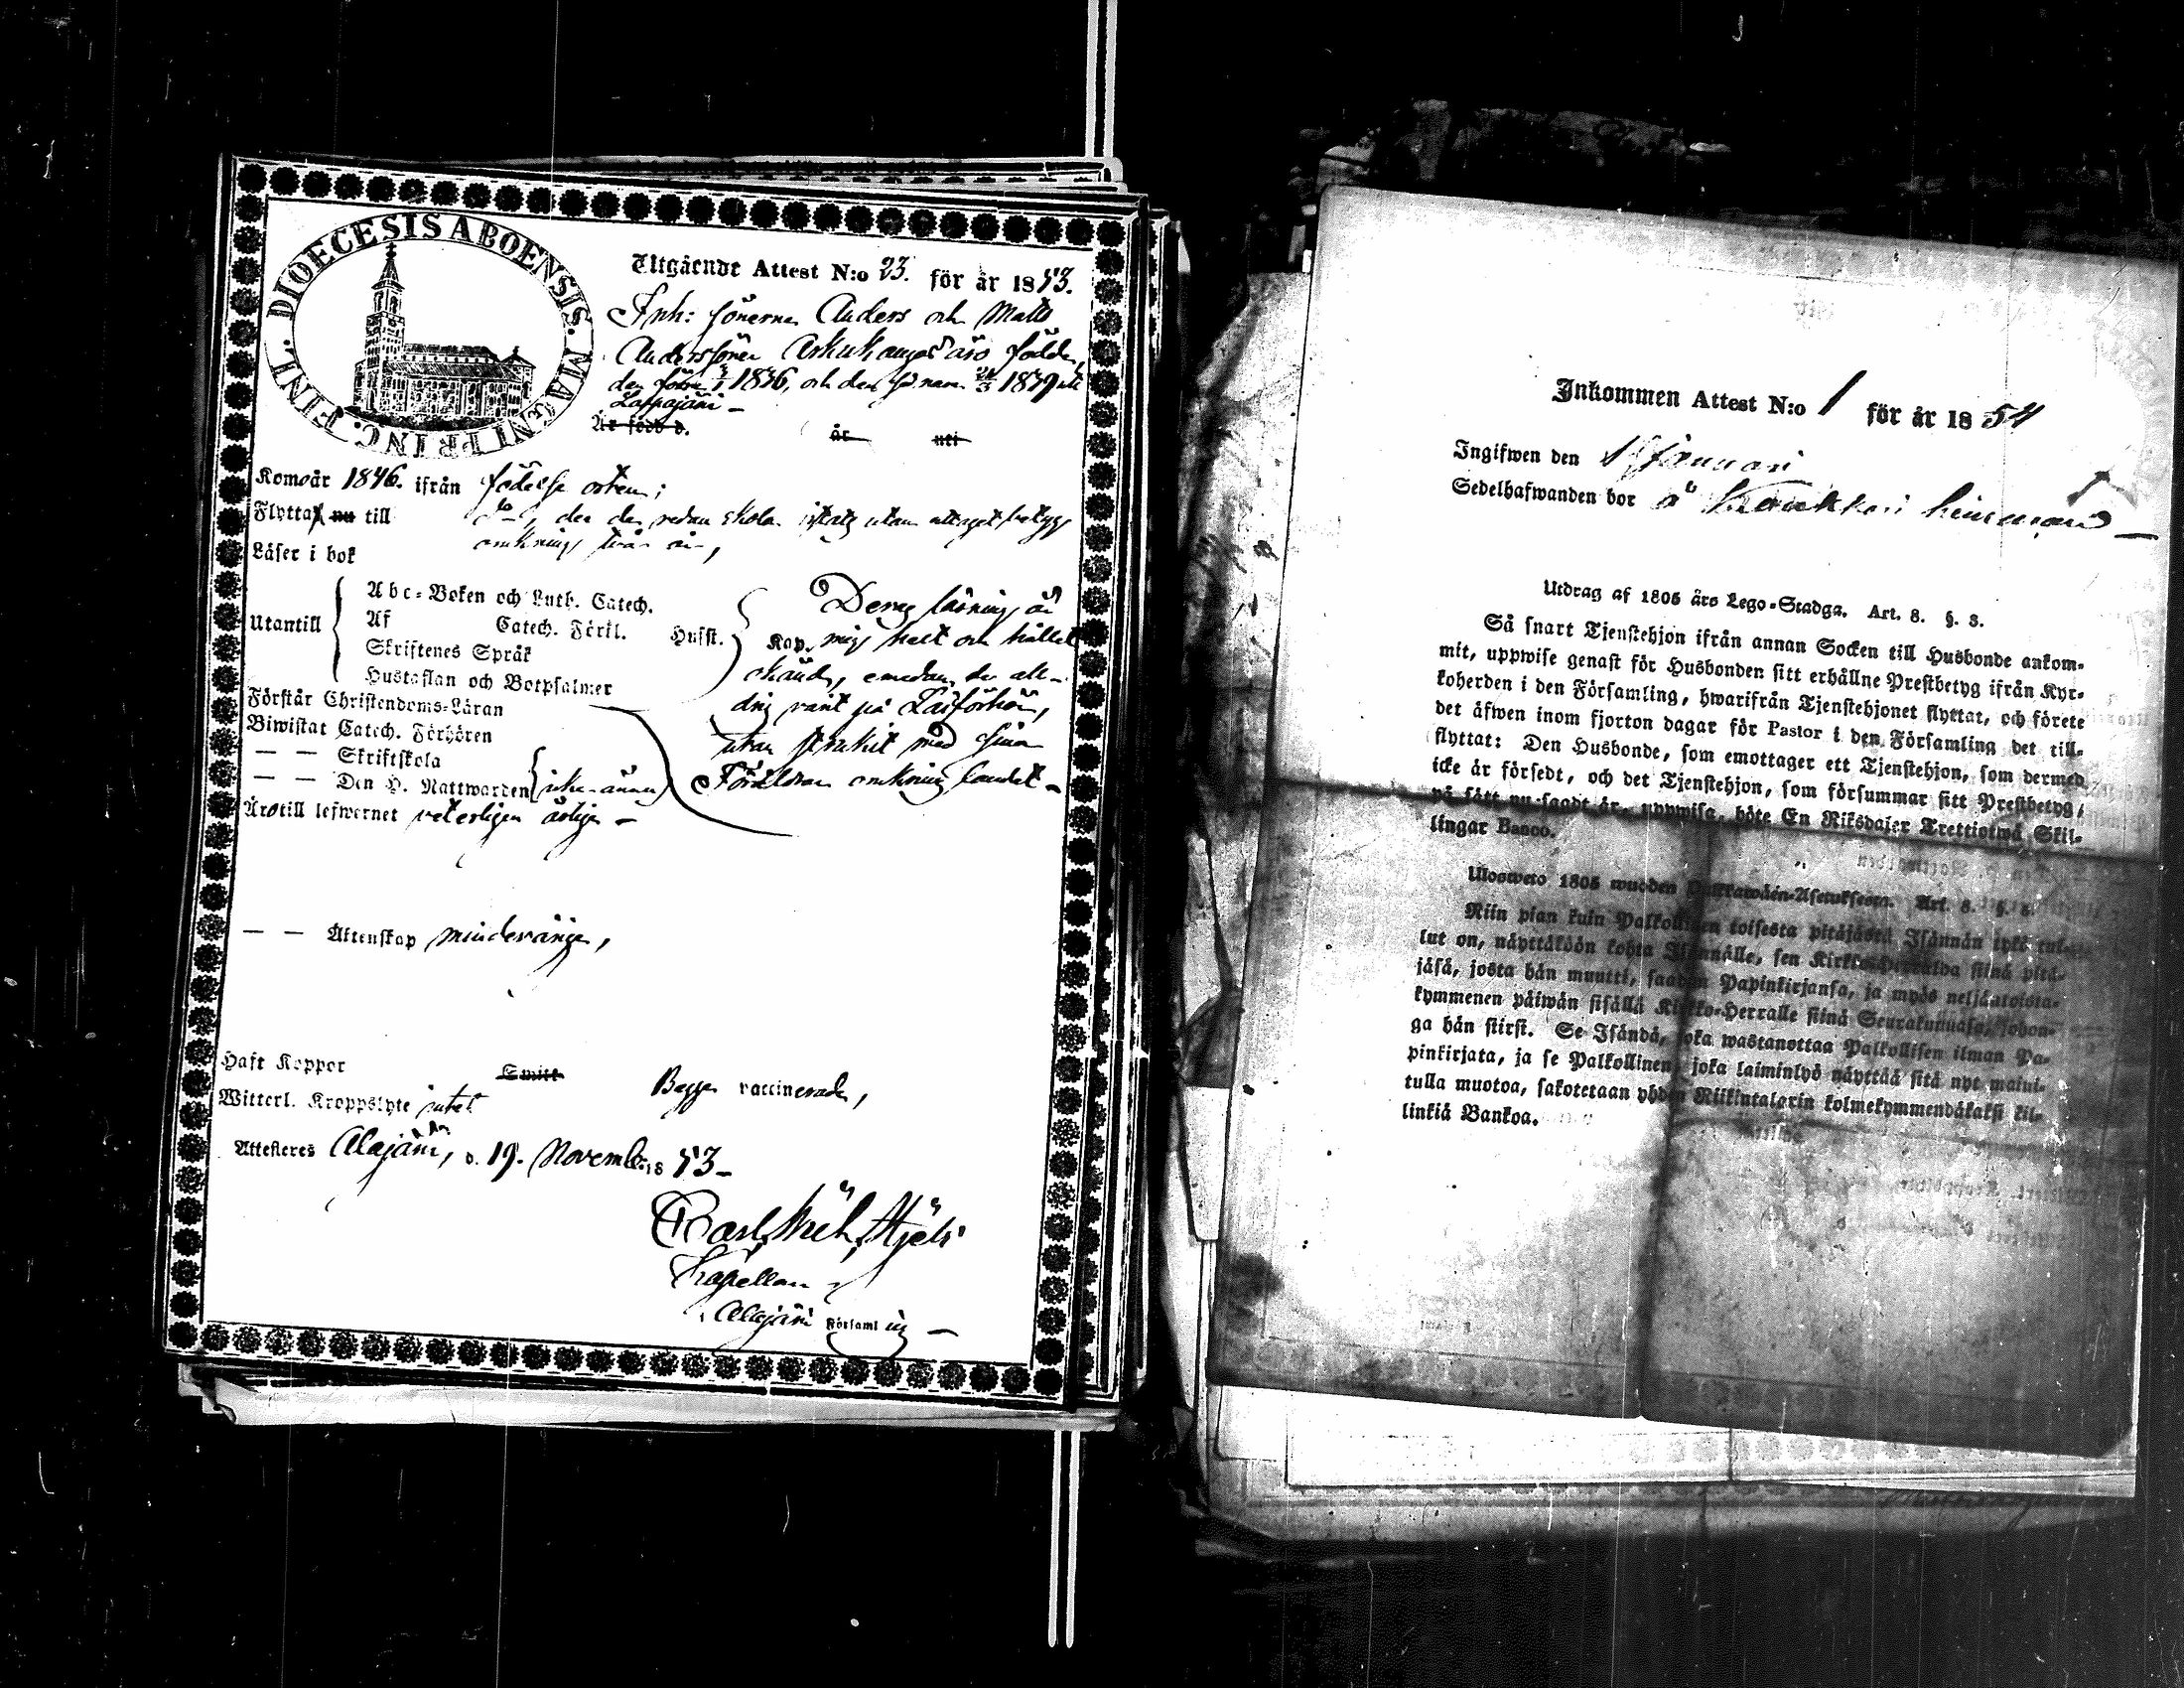 DIOECESIS ABOENSIS. MAGNI PRINC. FINL.
Utgående Attest N:o 23. för år 1853.
Inh: sönerne Anders och Matts
Anderssöner äro födde,
den förre 1836, och den 1839 uti
Lappajärvi –
Är född d. år uti
Komoår 1846. ifrån födelse orten;
Flytta nu till der de redan skola utan uttaget betyg
omkring två år,
Läser i bok
Utantill
Abc-Boken och Luth. Catech.
Af Catech. Förkl.
Skriftenes Språk
Hustaflan och Botpsalmer
Husst. Kap.
Deras läsning är
mig helt och hållet
okänd, emedan de ald-
rig varit på Läsförhör,
utan strukit med sina
Föräldrar omkring landet –
Förstår Christendoms-Läran
Biwistat Catech. Förhören
— — Skriftskola
— — Den H. Nattwarden icke ännu
Äro till lefwernet veterligen ärlige –
— — Äktenskap minderårige,
Haft Koppor Smitt Begge vaccinerade,
Witterl. Kroppslyte intet
Attesteras Alajärvi, d. 19. November 1853 –
Carl
Kapellan
i Alajärvi Församling –
Inkommen Attest N:o 1 för år 1854
Ingifwen den Januari
Sedelhafwanden bor å hemman –
Utdrag af 1805 års Lego-Stadga. Art. 8. §. 3.
Så snart Tjenstehjon ifrån annan Socken till Husbonde ankom-
mit, uppwise genast för Husbonden sitt erhållne Prestbetyg ifrån Kyr-
koherden i den Församling, hwarifrån Tjenstehjonet flyttat, och förete
det äfwen inom fjorton dagar för Pastor i den Församling det till-
flyttat: Den Husbonde, som emottager ett Tjenstehjon, som dermed
icke är försedt, och det Tjenstehjon, som försummar sitt Prestbetyg,
på sätt nu sagdt är, uppwisa, böte En Riksdaler Trettiotwå Skil-
lingar Banco.
Ulosweto 1805 wuoden Palkkawäen-Asetuksesta. Art. 8. §. 3.
Niin pian kuin Palkollinen toisesta pitäjästä Isännän tykö tul-
lut on, näyttäköön kohta Isännälle, sen Kirkko-Herralda siinä pitä-
jäsä, josta hän muutti, saadun Papinkirjansa, ja myös neljäntoista-
kymmenen päiwän sisällä Kirkko-Herralle siinä Seurakunnasa, johon-
ga hän siirsi. Se Isändä, joka wastanottaa Palkollisen ilman Pa-
pinkirjata, ja se Palkollinen, joka laiminlyö näyttää sitä nyt mainit-
tulla muotoa, sakotetaan yhden Riikintalarin kolmekymmendäkaksi kil-
linkiä Bankoa.